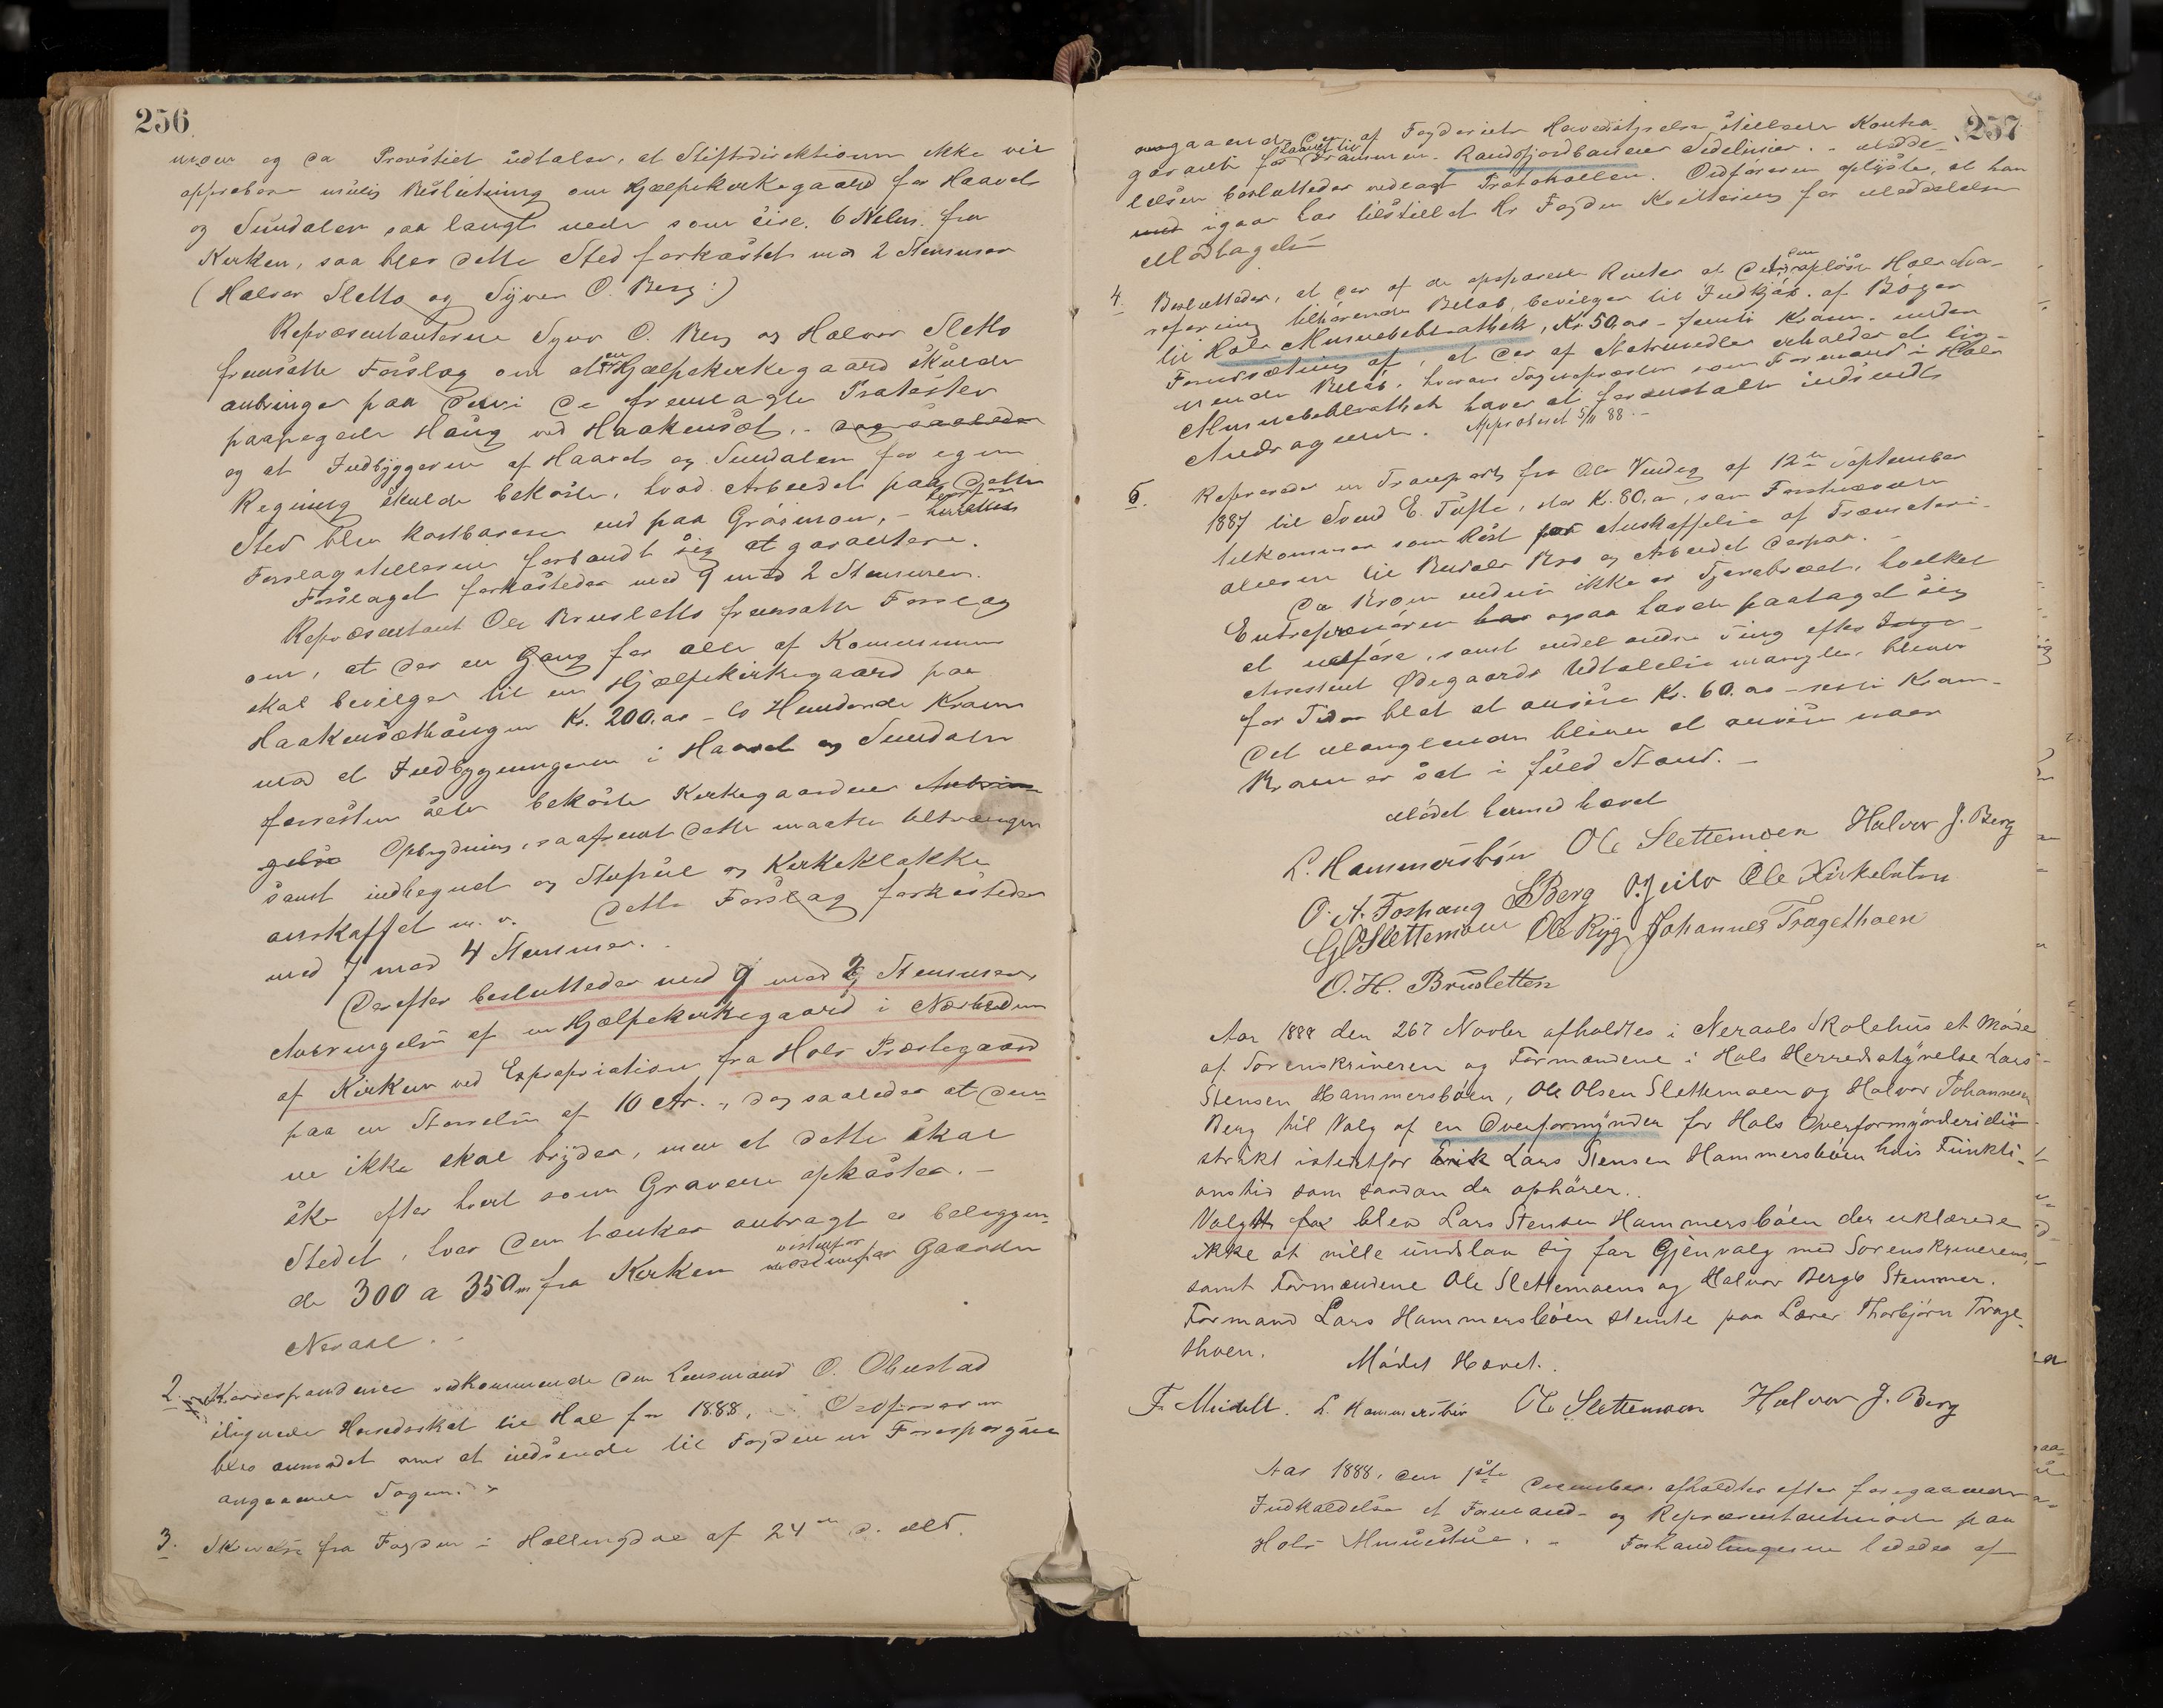 256
og da Provstiet udtaler, at Stiftsdirektionen ikke vil
approbere Beslutning om Hjælpekirkegaard for Haavel
og Sundalen saa langt nede som 6 fra
Kirken, saa blev dette Sted forkastet mod 2 Stemmer
(Halvor Sletto og Syver O. Berg:)
Repræsentanterne Syver O. Berg og Halvor Sletto
fremsatte Forslag om at en Hjælpekirkegaard skulde
anbringes paa den i de fremlagte Protester
paapegede Haug ved Haakensæt, - dog saaledes
og at Indbyggerne af Haavels og Sundalen for egen
Regning skulde bekoste, hvad Arbeidet paa dette
Sted blev kostbarere end paa Gråsmoen, - hvorfor
Forslagstillerne forbandt sig at garantere.
Forslaget forkastedes med 9 mod 2 Stemmer.
Repræsentant Ole Brusletto fremsatte Forslag
om, at der en Gang for alle af Kommunen
skal bevilges til en Hjælpekirkegaard paa
Haakensæthaugen Kr. 200.00 - to Hundrede Kroner
mod at Indbyggningerne i Haavel og Sundalen
forresten selv bekoster Kirkegaardens Anbrin-
gelse Opbrydning, saafremt dette maatte tiltrænges
samt indhegnet og Støpul og Kirkeklokke
anskaffet m. v. Dette Forslag forkastedes
med 7 mod 4 Stemmer.
Derefter besluttedes med 9 mod 2 Stemmer,
Anbringelse af en Hjælpekirkegaard i Nærheden
af Kirken ved Expropriation fra Hols Præstegaard
paa en Størrelse af 10 Ar., dog saaledes at den-
ne ikke skal brydes, men at dette skal
ske efter hvert som Gravene opkastes. -
Stedet, hvor den tænkes anbragt er beliggen-
de 300 a 350 m fra Kirken vestenfor Gaarden
Neraal.
2. Korrespondence vedkommende den Lensmand O. Olustad
ilignede Herredsskat til Hol for 1888. Ordføreren
blev anmodet om at indsende til Fogden en Forespørgsel
angaaende Sagen.
3. Skrivelse fra Fogden i Hallingdal af 24de d. Md.
257
angaaende den af Fogderiets Herredsstyrelser stillede Kontra-
garanti for Laanet til Drammen-Randsfjordbanens Sidelinier. - Medde-
lelsen besluttedes vedlagt Protokollen. Ordføreren oplyste, at han
igaar har tilstillet Hr Fogden Kvittering for Meddelelsens
Modtagelse
4. Besluttedes, at der af de opsparede Renter af det den opløste Hols
tilhørende Beløb, bevilges til Indkjøb af Bøger
til Hols Almuebibliothek, Kr. 50,00 - femti Kroner, under
Forudsætning af, at der af Statsmidler erholdes et lig-
nende Beløb, hvorom Sognepræsten som Formand i Hols
Almuebibliothek haver at foranstalte indsendt
Andragende. Approberet 5/11 88. -
5. Refereredes en Transport fra Ole Vindeg af 12te September
1887 til Svend E. Tufte, stor Kr. 80.00, som Forstnævnte
tilkommer som Rest for Anskaffelse af Træmateri-
alierne til Bro og Arbeidet derpaa. -
Da Broen endnu ikke er Tjærebredt, hvilket
Entreprenøren har ogsaa havde paataget sig
at udføre, samt endel andre Ting efter Inge-
Assistent Ødegaards Udtalelse mangler, bliver
for Tiden blot at anvise Kr. 60.00 - seksti Kroner-
Det manglende bliver at anvise naar
Broen er sat i fuld Stand. -
Mødet hermed hævet
L. Hammersbøn Ole Slettemoen Halvor J. Berg
O. A. Foshaug SBerg Ole Kirkebøten
G O Slettemoen Ole Rygg Johannes Tragethoen
O. H. Brusletten
Aar 1888 den 26? Novbr afholdtes i Neraals Skolehus et Møde
af Sorenskriveren og Formændene i Hols Herredsstyrelse Lars
Stensen Hammersbøen, Ole Olsen Slettemoen og Halvor Johannesen
Berg til Valg af en Overformynder for Hols Overformynderidi-
strikt istedetfor Erik Lars Stensen Hammersbøen hvis Funkti-
onstid som saadan da ophører.
Valgt for blev Lars Stensen Hammersbøen der erklærede
ikke at ville undslaa sig for Gjenvalg med Sorenskriverens,
samt Formændene Ole Slettemoens og Halvor Bergs Stemmer.
Formand Lars Hammersbøen stemte paa Lærer Thorbjørn Trage-
thoen.
Mødet Hævet.
F. Meidell. L. Hammersbøn Ole Slettemoen Halvor J. Berg
Aar 1888, den 1ste December, afholdtes efter foregaaende
Indkaldelse et Formand- og Repræsentantmøde paa
Hols. - Forhandlingerne lededes af